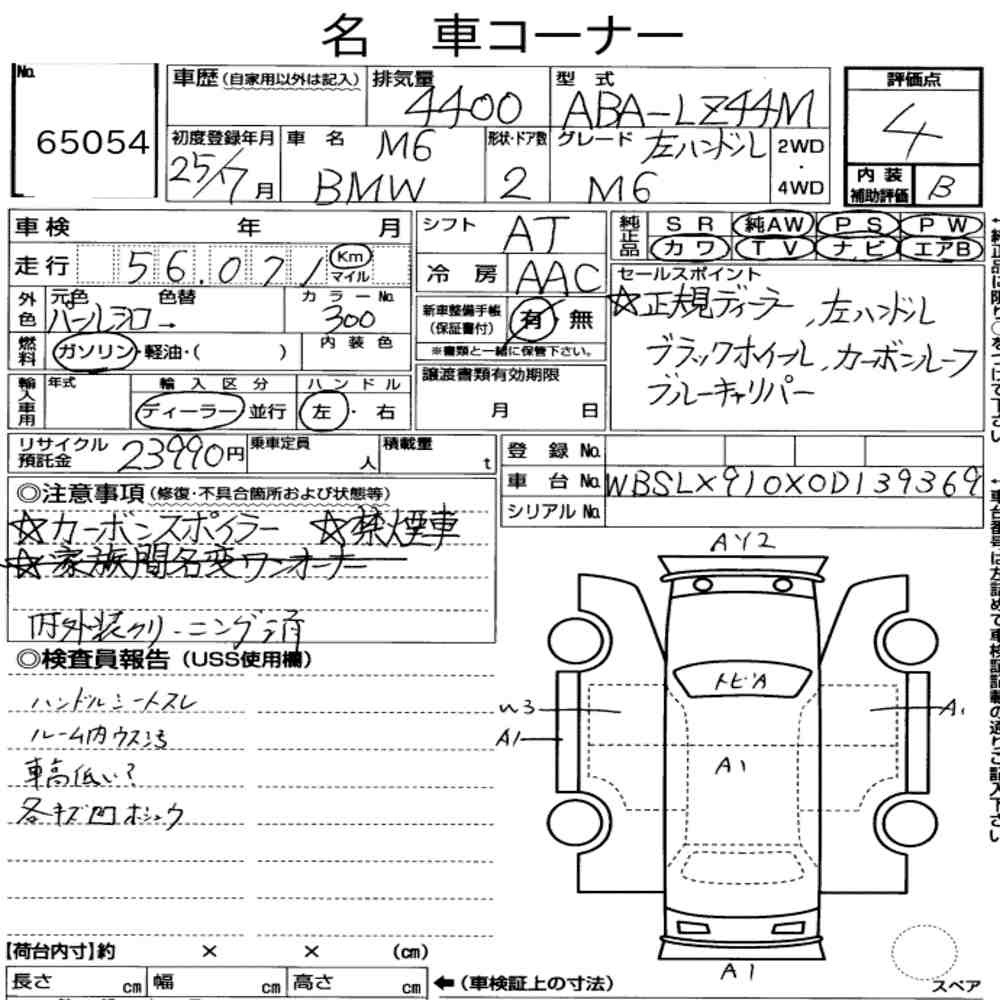 名 車コーナー
No. 65054
車歴(自家用以外は記入)
排気量 4400
型 式 ABA-LZ44M
評価点 4
初度登録年月 25/7月
車 名 M6 BMW
形状・ドア数 2
グレード 左ハンドル M6
2WD・4WD
内装補助評価 B
車検 年 月
シフト AT
純正品 SR 純AW PS PW
カワ TV ナビ エアB
走行 56.071 Km マイル
冷 房 AAC
セールスポイント
☆正規ディーラー、左ハンドル
ブラックホイール、カーボンルーフ
ブルーキャリパー
外色 元色 色替 パールシロ→
カラーNo. 300
内装色
新車整備手帳(保証書付) 有・無
※書類と一緒に保管下さい。
燃料 ガソリン・軽油・( )
輸入車用 年式
輸入区分 ディーラー 並行
ハンドル 左・右
譲渡書類有効期限
月 日
リサイクル預託金 23990円
乗車定員 人
積載量 t
登 録 No.
車 台 No. WBSLX910X0D139369
シリアルNo.
◎注意事項(修復・不具合箇所および状態等)
☆カーボンスポイラー ☆禁煙車
☆家族間名変ワンオーナー
内外装クリーニング済
◎検査員報告(USS使用欄)
ハンドルシートスレ
ルーム内ウス汚
車高低い?
各キズ凹ホシュウ
AY2
トビA
W3
A1
A1
A1
A1
【荷台内寸】約 × × (cm)
長さ cm 幅 cm 高さ cm
←(車検証上の寸法)
スペア
←純正品は限り○をつけて下さい
←車台番号は左詰めで車検証記載の通りご記入下さい